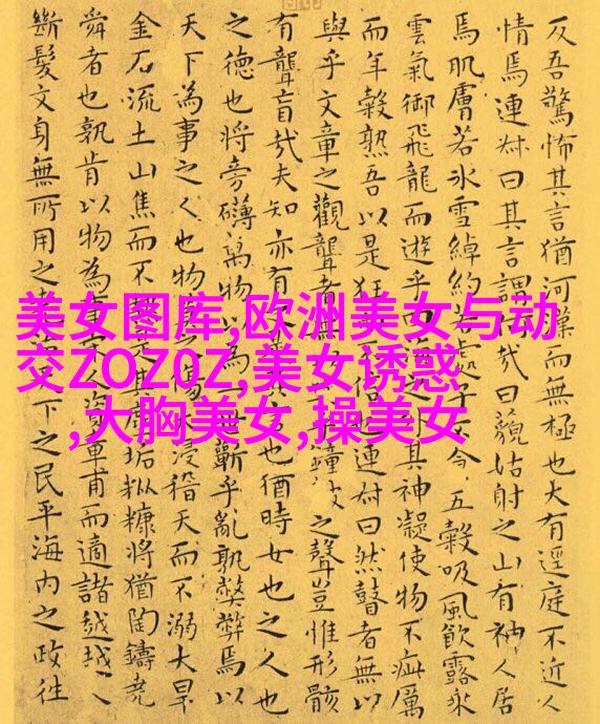 反吾驚怖其言猶河漢而無極也大有逕庭不近人
情焉連叔曰其言謂何哉曰藐姑射之山有神人居
焉肌膚若冰雪綽約若處子不今五穀吸風飲露乘
雲氣御飛龍而遊乎之外其神凝使物不疵厲
而年穀熟吾以是狂不信也連叔曰然瞽者無以
與乎文章之觀聾者無鐘鼓之聲豈惟形骸
有聾盲哉夫知亦有之也猶時女也之人也
之德也將旁礴萬物以為一蘄乎亂孰弊弊焉以
天下為事之人也物大浸稽天而不溺大旱
金石流土山焦而不熱是其塵垢粃糠將猶陶鑄堯
舜者也孰肯以物為事人資章甫而適諸越越人
斷髮文身無所用之下之民平海內之政往
美女图库,欧洲美女与动
交ZOZ0Z,美女诱惑
,大胸美女,操美女